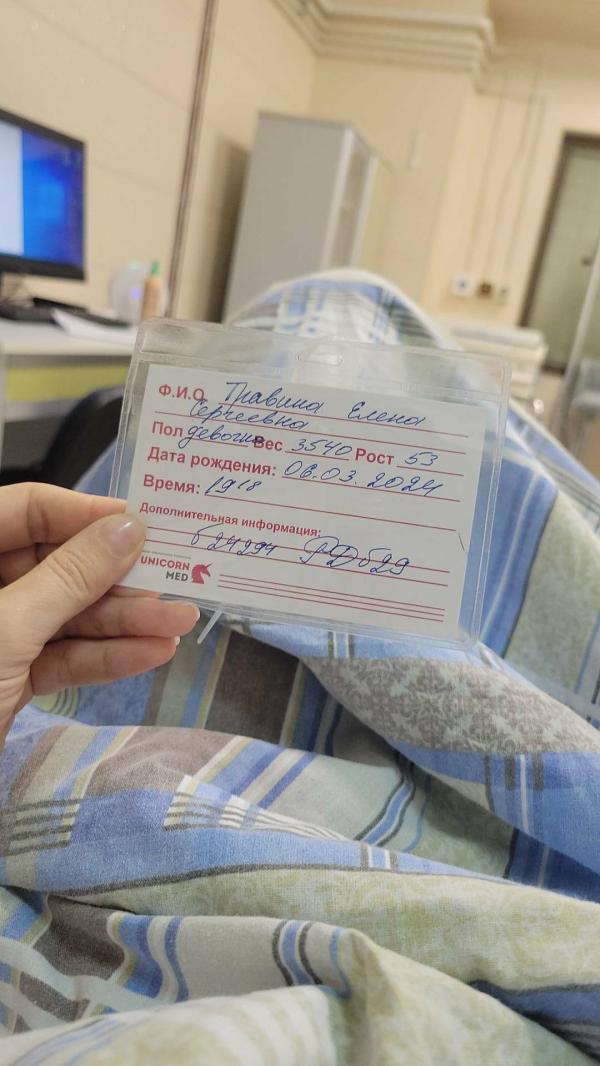 Ф.И.О. Травина Елена
Сергеевна
Пол девочка Вес 3540 Рост 53
Дата рождения: 06.03.2024
Время: 1918
Дополнительная информация:
624294
UNICORN
MED